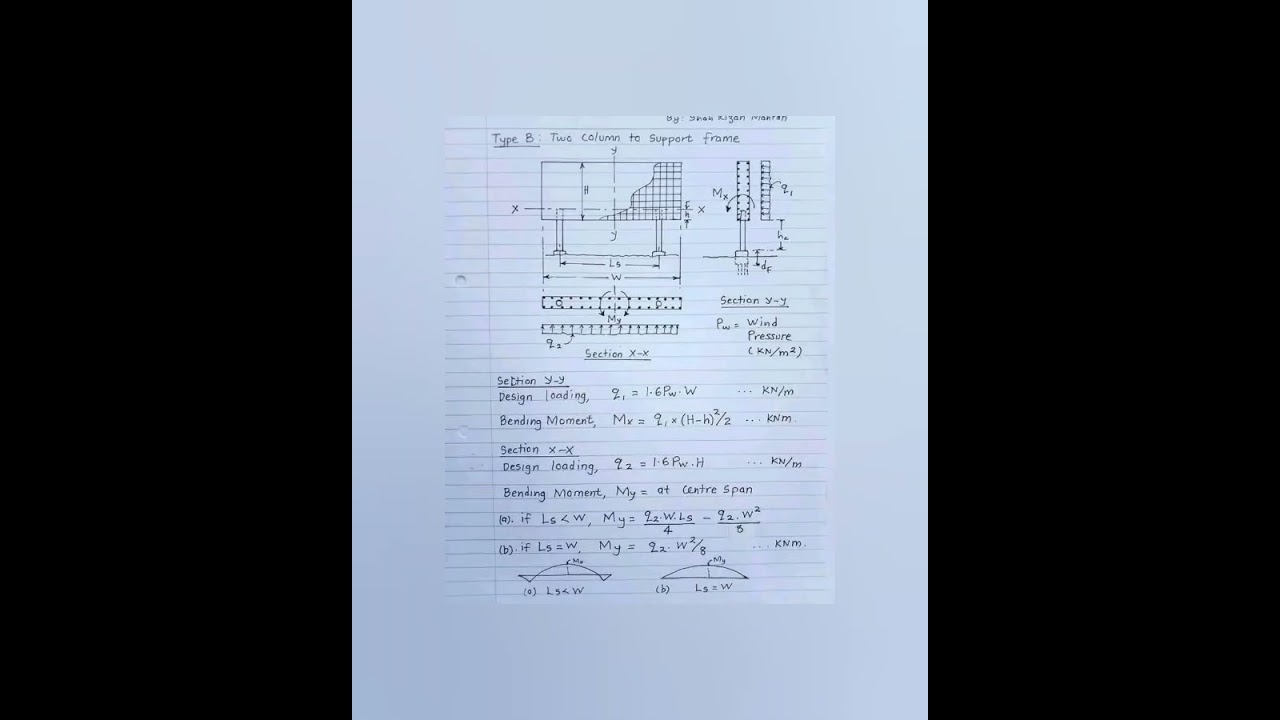 By: Shah Rizan Manran
Type B: Two column to support frame
y
H
Mx
q1
X
X
h
y
hc
Ls
df
W
My
q2
Section X-X
Section y-y
Pw = Wind
Pressure
(KN/m²)
Section y-y
Design loading, q1 = 1.6Pw.W ... KN/m
Bending Moment, Mx = q1 x (H-h)²/2 ... KNm.
Section x-x
Design loading, q2 = 1.6Pw.H ... KN/m
Bending Moment, My = at Centre span
(a). if Ls < W, My = q2.W.Ls/4 - q2.W²/8
(b). if Ls = W, My = q2.W²/8 .... KNm.
My
(a) Ls < W
(b) Ls = W